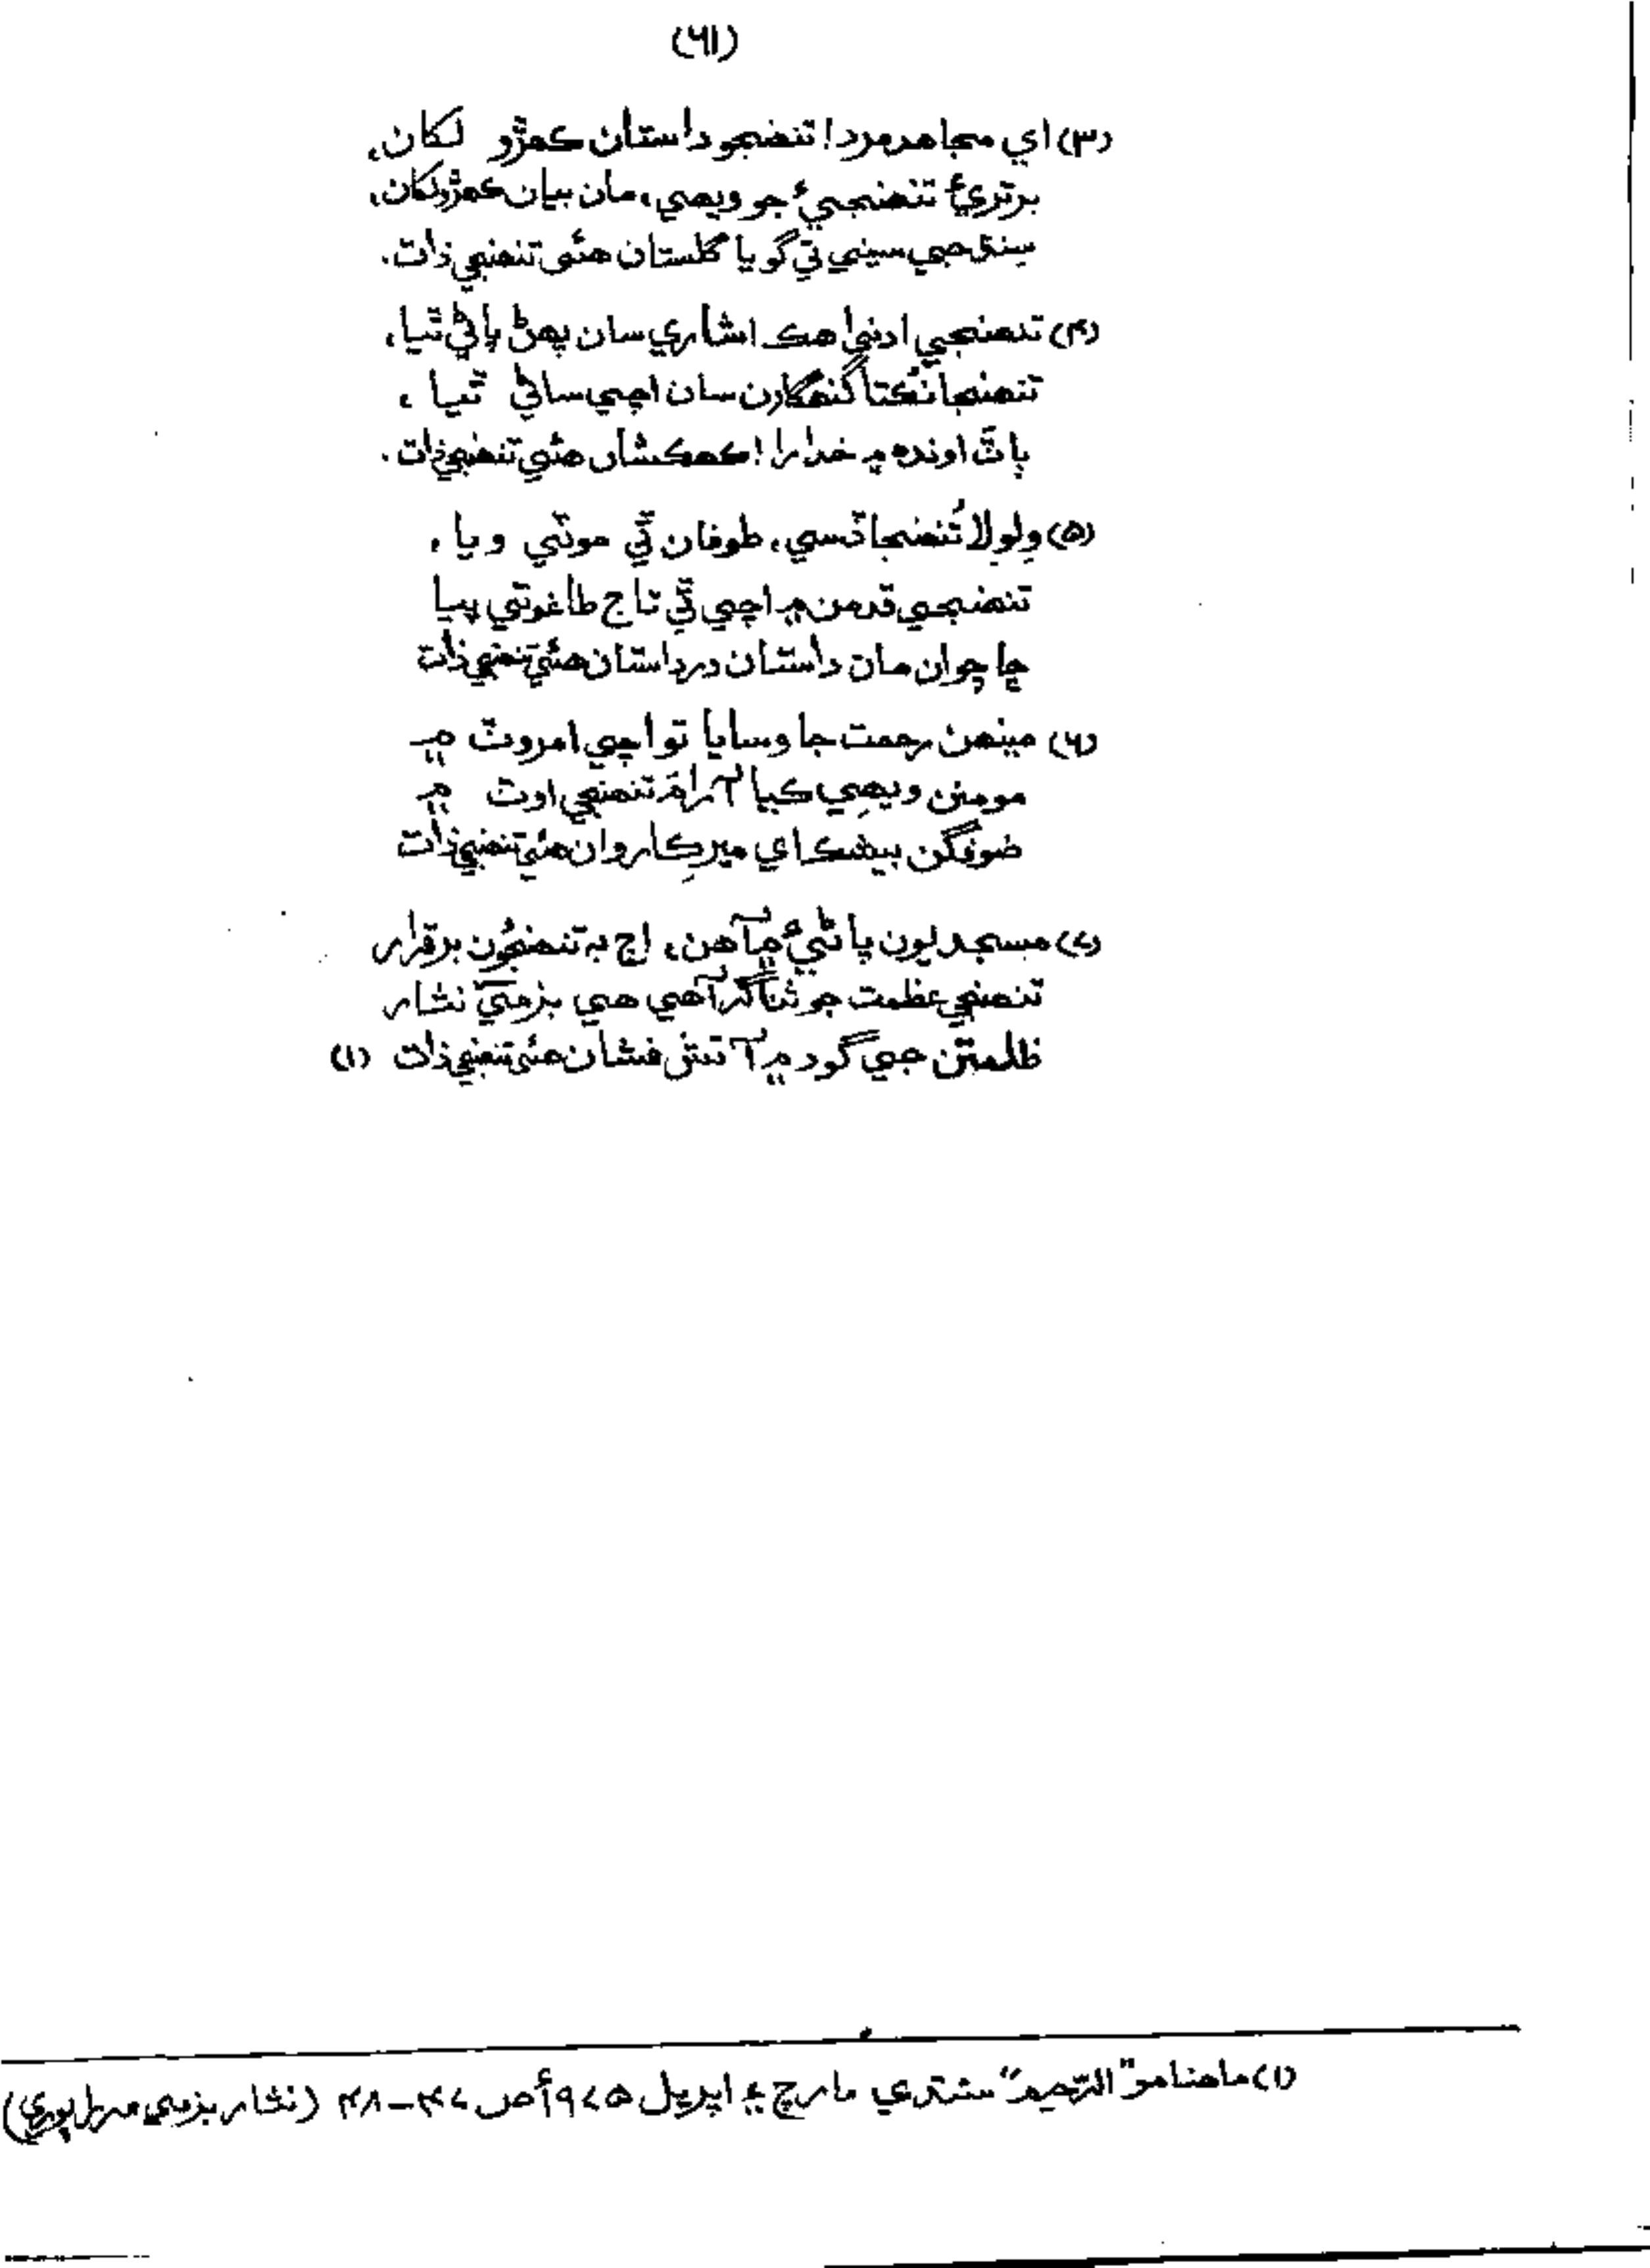 (٦١)
(٣) اي مجاهد مرد! تنهنجو داستان ڪهڙو لکان،
برتريءَ تنهنجيءَ جو ويهي، مان بيان ڪهڙو لکان،
سنڌ جي سيني تي گويا گلستان هئي تنهنجي ذات.
(۴) تنهنجي ادنيٰ هڪ اشاري سان پهڻ پاڻي ٿيا،
تنهنجا نُڪتا گنهگارن سان اچي ساڻي ٿيا،
باٿ اونده ۾ خدارا! ڪهڪشان هئي تنهنجي ذات.
(۵) ولولا تُنهنجا ڏسي، طوفان ٿي موٽي ويا،
تنهنجي قدمن ۾ اچي ٿي تاج طاغوتي پيا
ڇا چوان مان داستان در داستان هئي تنهنجي ذات
(٦) مينهن رحمت جا وسايا تو اچي امروٽ ۾
مومنن ويهي ڪيا آرامَ تنهنجي اوٽ ۾
ضوفگن بيشڪ اي ميرِ ڪاروان هئي تنهنجي ذات
(٧) مسجديون پاڻيءَ ۾ آهن، اڄ به تنهنجون برقرار
تنهنجي عظمت جو ثناگر آهي هي بزميؔ نثار
ظلمتن جي گود ۾ آتش فشان هئي تنهنجي ذات (١)
(١) ماهنامو "الرحيم" سنڌي مارچ ۽ اپريل ١٩٧٥ع ص ۴٧-۴٨ (نثار بزمي ميراپوري)